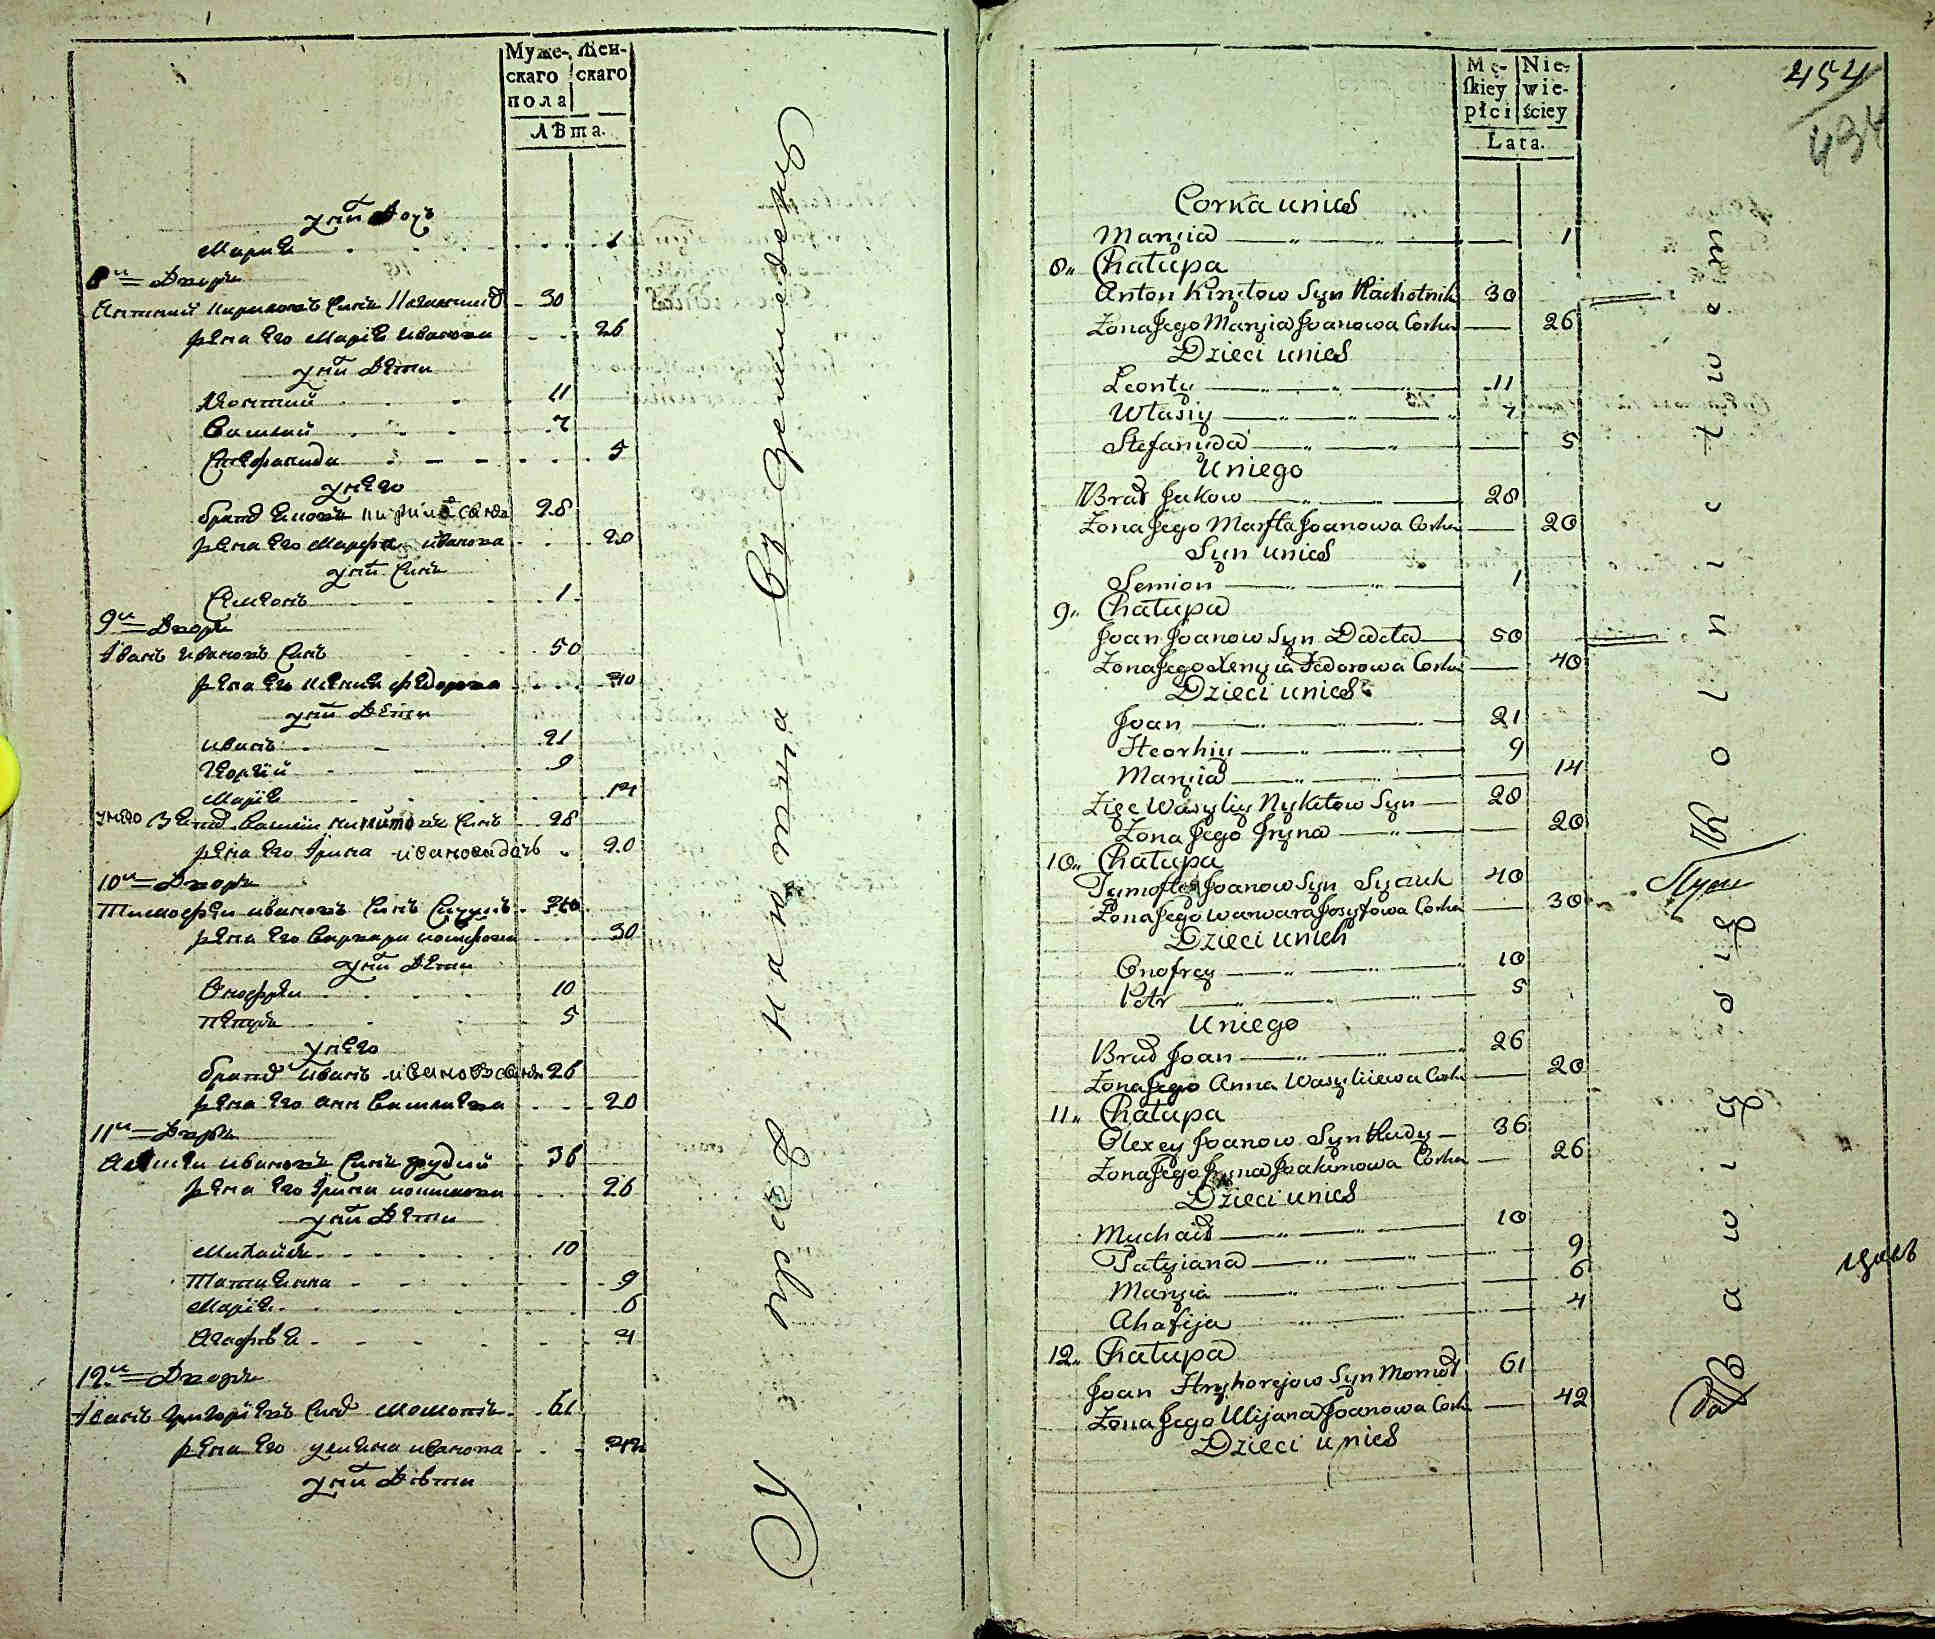 Муже-
скаго
пола
Жен-
скаго
Лѣта.
у них дочь
Марiя 1
8й Дворъ
Антоний Кирилов Синъ 30
жена его Марiя Иванова 26
у них дети
Леонтий 11
Василий 7
Стефанида 5
у него
брат Яковъ 28
жена его Марфа Иванова 20
у них синъ
Семионъ 1
9й Дворъ
Iванъ Ивановъ Синъ 50
жена его Ксения Федорова 40
у них дети
Иванъ 21
Георгiй 9
Марiя 14
у него Зять Василiй Никитовъ Синъ 28
жена его Iрина Иванова дочь 20
10й Дворъ
Тимофей Ивановъ Синъ 40
жена его Варвара Иосифова 30
у них дети
Онофрей 10
Петръ 5
у него
брат Иванъ 26
жена его Анна Василиева 20
11й Дворъ
Алексей Ивановъ Синъ Рудий 36
жена его Iрина 26
у них дети
Михайло 10
Татияна 9
Марiя 6
Агафiя 4
12й Дворъ
Iванъ Григорiевъ Синъ 61
жена его Улияна Иванова 42
у них дѣти
Mę-
skiey
płci
Nie-
wie-
ściey
Lata.
454
434
Corka unich
Maryia 1
8. Chałupa
Anton Kiryłow Syn 30
Zona Jego Maryia Joanowa Corka 26
Dzieci unich
Leonty 11
Własiy 7
Stefanida 5
Uniego
Brat Jakow 28
Zona Jego Marfta Joanowa Corka 20
Syn unich
Semion 1
9. Chałupa
Joan Joanow Syn 50
Zona Jego Xenyia Fedorowa Corka 40
Dzieci unich
Joan 21
Heorhiy 9
Maryia 14
Zięc Wasyliy Nykitow Syn 28
Zona Jego Jryna 20
10. Chałupa
Tymoftey Joanow Syn 40
Zona Jego Warwara Josyfowa Corka 30
Dzieci unich
Onofrey 10
Petr 5
Uniego
Brat Joan 26
Zona Jego Anna Wasyliiewa Corka 20
11. Chałupa
Olexey Joanow Syn Rudy 36
Zona Jego Jryna Joakimowa Corka 26
Dzieci unich
Muchaił 10
Tatyiana 9
Maryia 6
Ahafija 4
12. Chałupa
Joan Hryhorejow Syn 61
Zona Jego Ulijana Joanowa Corka 42
Dzieci unich